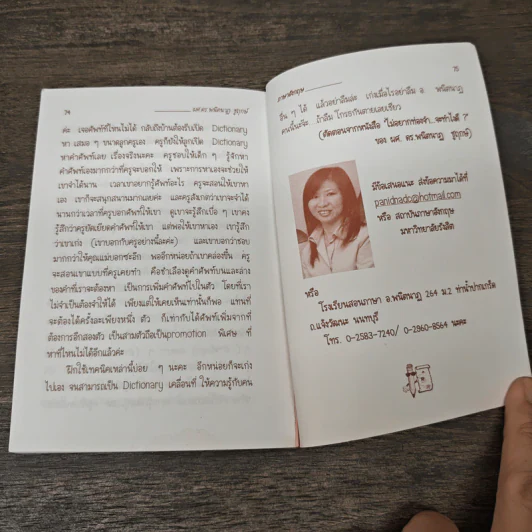 74
ผศ.ดร.พนิตนาฏ ชูฤกษ์
ค่ะ เจอศัพท์ที่ไหนไม่ได้ กลับถึงบ้านต้องรีบเปิด Dictionary
หา เสมอ ๆ ขนาดลูกครูเอง ครูก็ยังให้ลูกเปิด Dictionary
หาคำศัพท์เลย เรื่องจริงนะคะ ครูชอบให้เด็ก ๆ รู้จักหา
คำศัพท์เองมากกว่าที่ครูจะบอกให้ เพราะการหาเองจะช่วยให้
เขาจำได้นาน เวลาเขาอยากรู้ศัพท์อะไร ครูจะสอนให้เขาหา
เอง เขาก็จะสนุกสนานมากเลยค่ะ และครูสังเกตว่าเขาจะจำได้
นานกว่าเวลาที่ครูบอกศัพท์ให้เขา ดูเขาจะรู้สึกเบื่อ ๆ เขาคง
รู้สึกว่าครูยัดเยียดคำศัพท์ให้เขา แต่พอให้เขาหาเอง เขารู้สึก
ว่าเขาเก่ง (เขาบอกกับครูอย่างนี้ละค่ะ) และเขาบอกว่าชอบ
มากกว่าให้คุณแม่บอกซะอีก พออีกหน่อยถ้าเขาคล่องขึ้น ครู
จะสอนเขาแบบที่ครูเคยทำ คือชำเลืองดูคำศัพท์บนและล่าง
ของคำที่เราจะต้องหา เป็นการเพิ่มคำศัพท์ไปในตัว โดยที่เรา
ไม่จำเป็นต้องจำให้ได้ เพียงแต่ให้เคยเห็นเท่านั้นก็พอ แทนที่
จะต้องได้ครั้งละเพียงหนึ่ง ตัว ก็เท่ากับได้ศัพท์เพิ่มจากที่
ต้องการอีกสองตัว เป็นสามตัวถือเป็นpromotion พิเศษ ที่
หาที่ไหนไม่ได้อีกแล้วค่ะ
ฝึกใช้เทคนิคเหล่านี้บ่อย ๆ นะคะ อีกหน่อยก็จะเก่ง
ไปเอง จนสามารถเป็น Dictionary เคลื่อนที่ ให้ความรู้กับคน
ภาษาอังกฤษ
75
อื่น ๆ ได้ แล้วอย่าลืมล่ะ เก่งเมื่อไรอย่าลืม อ. พนิตนาฏ
คนนี้นะค๊ะ ถ้าลืม โกรธกันตายเลยเชียว
(คัดตอนจากหนังสือ "ไม่อยากท่องจำ...จะทำได้ ?"
ของ ผศ. ดร.พนิตนาฏ ชูฤกษ์)
มีข้อเสนอแนะ ส่งข้อความมาได้ที่
panidnado@hotmail.com
หรือ สถาบันภาษาอังกฤษ
มหาวิทยาลัยรังสิต
หรือ
โรงเรียนสอนภาษา อ.พนิตนาฏ 264 ม.2 ท่าน้ำปากเกร็ด
ถ.แจ้งวัฒนะ นนทบุรี
โทร. 0-2583-7240/ 0-2960-8564 นะคะ